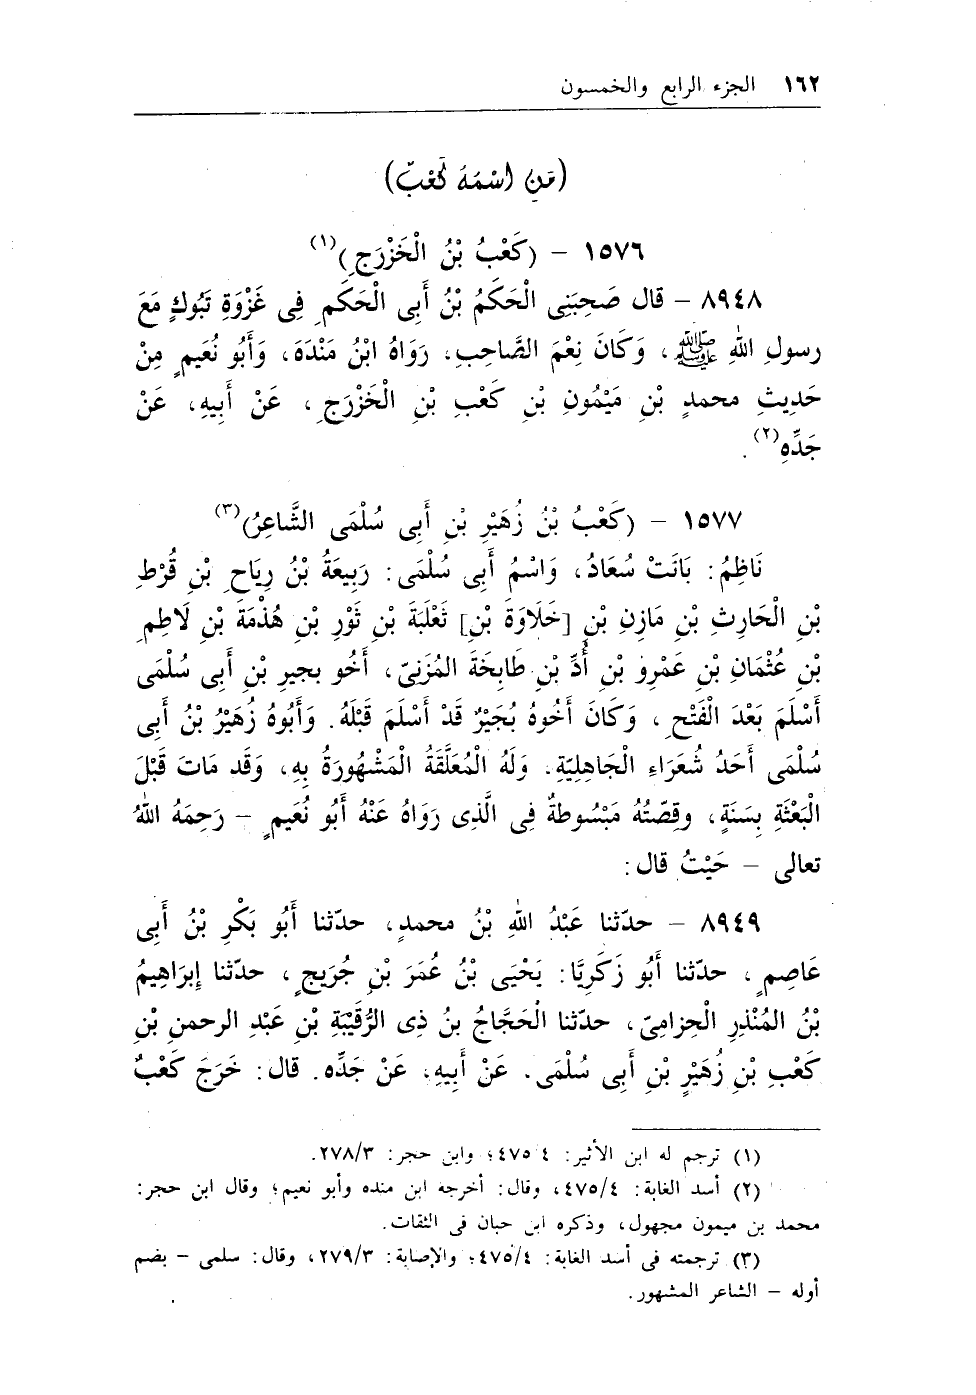 ١٦٢ الجزء الرابع والخمسون
(مَنِ اسْمَهُ كَعْبٌ)
١٥٧٦ - (كَعْبُ بْنُ الْخَزْرَجِ)(١)
٨٩٤٨ - قال صَحِبَنِى الْحَكَمُ بْنُ أَبِى الْحَكَمِ فِى غَزْوَةِ تَبُوكٍ مَعَ
رسولِ اللهِ ﷺ، وَكَانَ نِعْمَ الصَّاحِبِ، رَوَاهُ ابْنُ مَنْدَهَ، وَأَبُو نُعَيمٍ مِنْ
حَدِيثِ محمدٍ بْنِ مَيْمُونِ بْنِ كَعْبِ بْنِ الْخَزْرَجِ، عَنْ أَبِيهِ، عَنْ
جَدِّهِ(٢).
١٥٧٧ - (كَعْبُ بْنُ زُهَيْرِ بْنِ أَبِى سُلْمَى الشَّاعِرُ)(٣)
نَاظِمُ: بَانَتْ سُعَادُ، وَاسْمُ أَبِى سُلْمَى: رَبِيعَةُ بْنُ رِيَاحِ بْنِ قُرْطِ
بْنِ الْحَارِثِ بْنِ مَازِنِ بْنِ [خَلَاوَةَ بْنِ] ثَعْلَبَةَ بْنِ ثَوْرِ بْنِ هُذْمَةَ بْنِ لَاطِمِ
بْنِ عُثْمَانِ بْنِ عَمْرِو بْنِ أُدِّ بْنِ طَابِخَةَ المُزَنِىّ، أَخُو بجيرِ بْنِ أَبِى سُلْمَى
أَسْلَمَ بَعْدَ الْفَتْحِ، وَكَانَ أَخُوهُ بُجَيْرٌ قَدْ أَسْلَمَ قَبْلَهُ. وَأَبُوهُ زُهَيْرُ بْنُ أَبِى
سُلْمَى أَحَدُ شُعَرَاءِ الْجَاهِلِيّةِ. وَلَهُ الْمُعَلَّقَةُ الْمَشْهُورَةُ بِهِ، وَقَد مَاتَ قَبْلَ
الْبَعْثَةِ بِسَنَةٍ، وقِصّتُهُ مَبْسُوطةٌ فِى الَّذِى رَوَاهُ عَنْهُ أَبُو نُعَيمٍ - رَحِمَهُ اللهُ
تعالى - حَيْثُ قال:
٨٩٤٩ - حدّثنا عَبْدُ اللهِ بْنُ محمدٍ، حدّثنا أَبُو بَكْرِ بْنُ أَبِى
عَاصِمٍ، حدّثنا أَبُو زَكَرِيَّا: يَحْيَى بْنُ عُمَرَ بْنِ جُرَيجٍ، حدّثنا إِبرَاهِيمُ
بْنُ المُنْذِرِ الْحِزامِىّ، حدّثنا الْحَجَّاجُ بنُ ذِى الرُّقَيْبَةِ بْنِ عَبْدِ الرحمنِ بْنِ
كَعْبِ بْنِ زُهَيْرٍ بْنِ أَبِى سُلْمَى. عَنْ أَبِيهِ، عَنْ جَدِّه. قال: خَرَجَ كَعْبٌ
(١) ترجم له ابن الأثير: ٤ ٤٧٥؛ وابن حجر: ٢٧٨/٣.
(٢) أسد الغابة: ٤٧٥/٤، وقال: أخرجه ابن منده وأبو نعيم؛ وقال ابن حجر:
محمد بن ميمون مجهول، وذكره ابن حبان فى الثقات.
(٣) ترجمته فى أسد الغابة: ٤٧٥/٤؛ والإصابة: ٢٧٩/٣، وقال: سلمى - بضم
أوله - الشاعر المشهور.